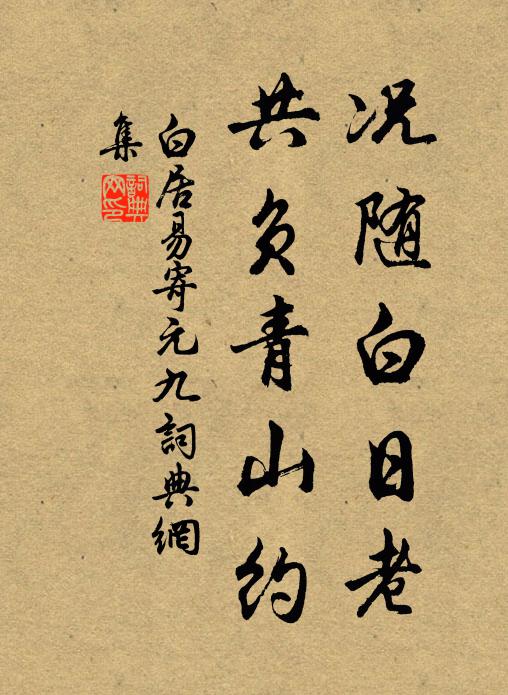 况随白日老
共负青山约
白居易寄元九詞典網
集
詞典
网印